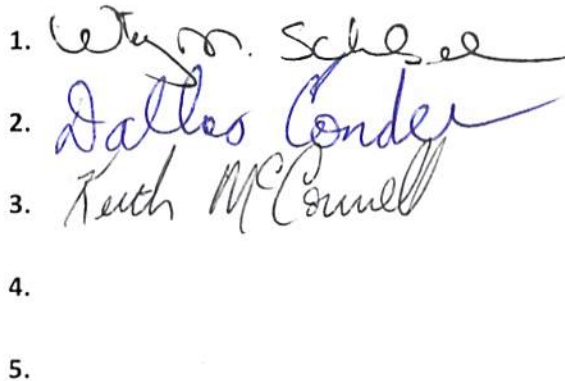 1.
2. Dallas Conder
3. Keith McConnell
4.
5.